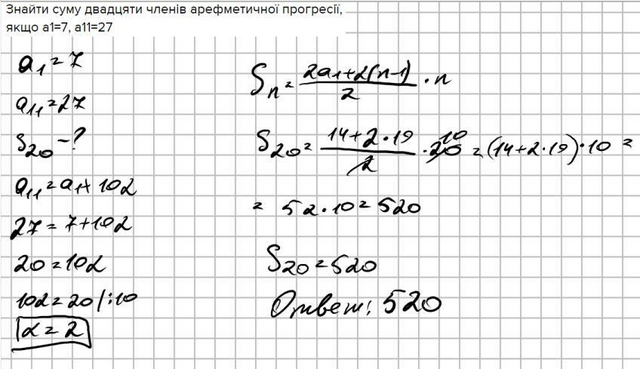 Знайти суму двадцяти членів арефметичної прогресії,
якщо a1=7, a11=27
a₁=7
a₁₁=27
S₂₀-?
a₁₁=a₁+10d
27=7+10d
20=10d
10d=20/:10
d=2
Sₙ=(2a₁+2(n-1))/2·n
S₂₀=(14+2·19)/2·20 10=(14+2·19)·10=
=52·10=520
S₂₀=520
Ответ: 520